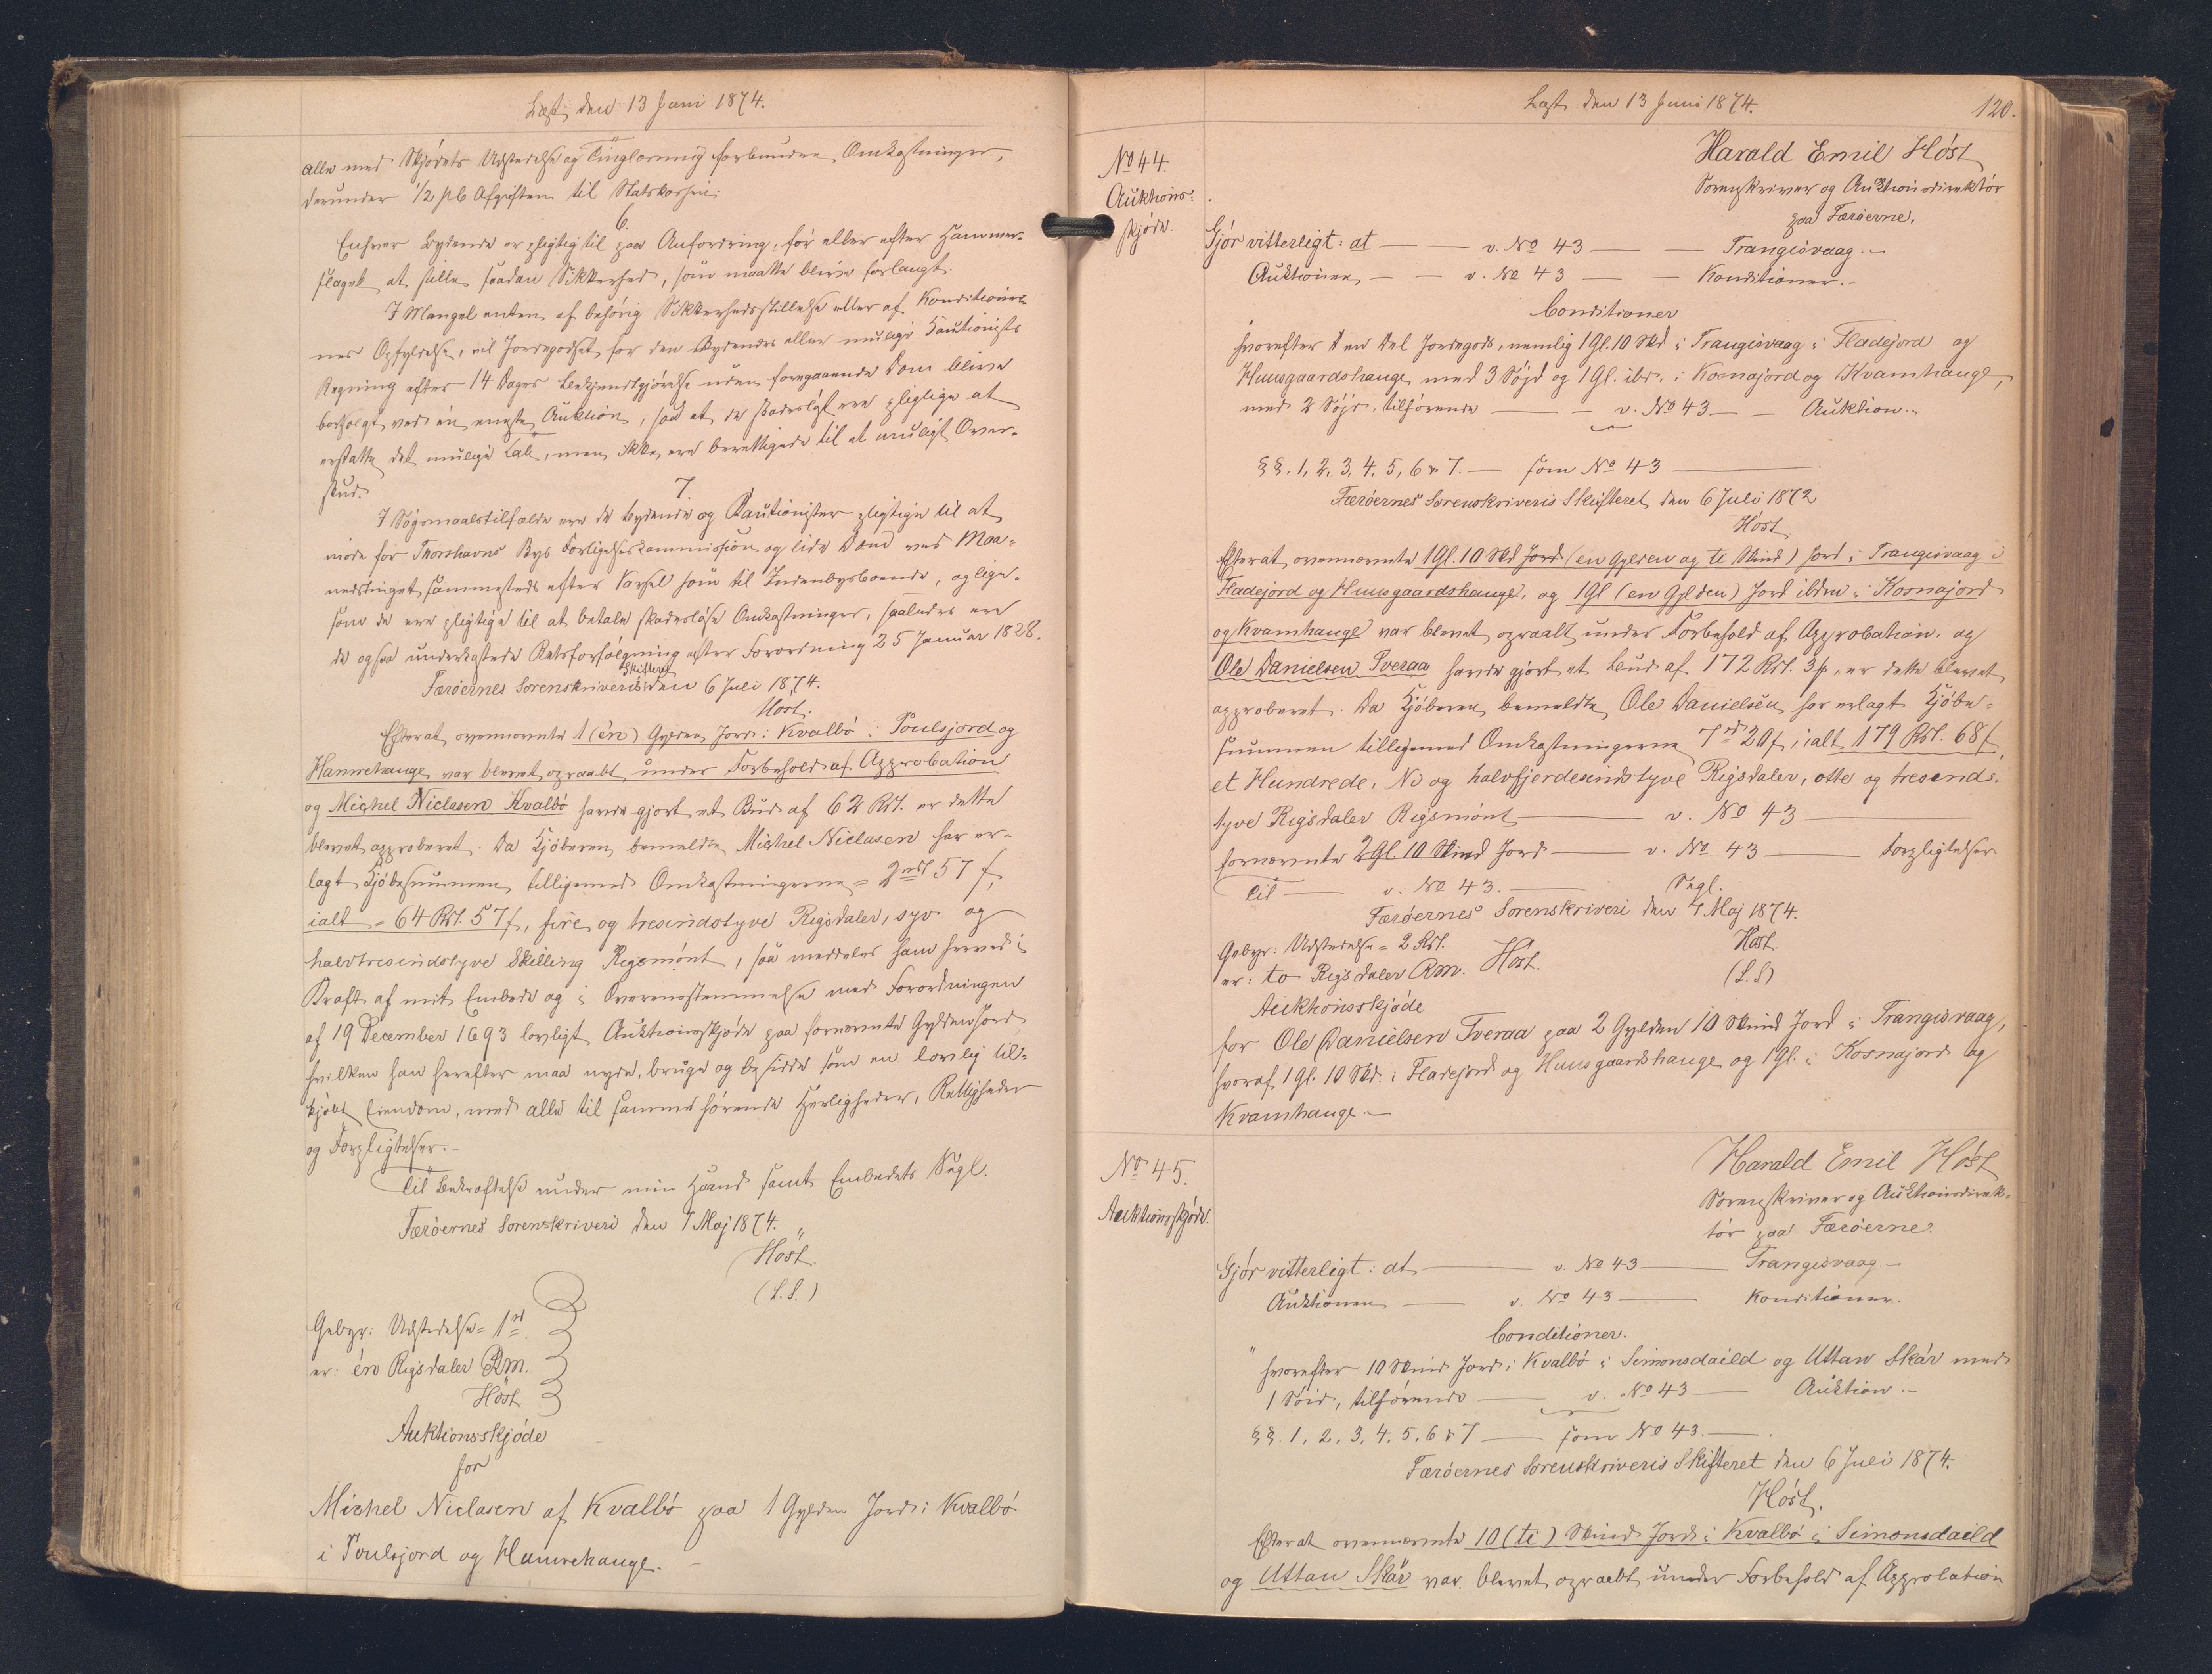 Læst den 13 Juni 1874.
alle med Skjødets Udstedelse og Tinglæsning forbundne Omkostninger,
derunder 1/2 pC Afgiften til Statskassen.
6.
Enhver Bydende er pligtig til paa Anfordring, før eller efter Hammer-
slaget at stille saadan Sikkerhed, som maatte blive forlangt.
I Mangel enten af behørig Sikkerhedsstillelse eller af Konditioner-
nes Opfyldelse, vil Jordegodset for den Bydendes eller mulige Kautionists
Regning efter 14 Dages Bekjendtgjørelse uden foregaaende Dom blive
bortsolgt ved én eneste Auktion, saa at de skadesløst ere pligtige at
erstatte det mulige Tab, men ikke ere berettigede til et muligt Over-
skud.
7.
I Søgsmaalstilfælde ere de Bydende og Kautionister pligtige til at
møde for Thorshavns Byes Forligelseskommission og lide Dom ved Maa-
nedstinget sammesteds efter Varsel som til Indenbysboende, og lige-
som de ere pligtige til at betale skadesløse Omkostninger, saaledes ere
de ogsaa underkastede Retsforfølgning efter Forordning 25 Januar 1828.
Færöernes Sorenskriveris Skifteret den 6 Juli 1874.
Höst.
Efterat ovennævnte 1 (én) Gylden Jord i Kvalbö i Poulsjord og
Hamrehauge var blevet opraabt under Forbehold af Approbation
og Michel Niclasen Kvalbö havde gjort et Bud af 62 Rd. er dette
blevet approberet. Da Kjøberen bemeldte Michel Niclasen har er-
lagt Kjøbesummen tilligemed Omkostningerne = 2 rd 57 f,
ialt = 64 Rd. 57 f, fire og tresindstyve Rigsdaler, syv og
halvtresindstyve Skilling Rigsmönt, saa meddeles ham herved i
Kraft af mit Embede og i Overensstemmelse med Forordningen
af 19 December 1693 lovligt Auktionsskjøde paa fornævnte Gylden Jord
hvilken han herefter maa nyde, bruge og besidde som en lovlig til-
kjøbt Eiendom, med alle til samme hørende Herligheder, Rettigheder
og Forpligtelser.-
Til Bekræftelse under min Haand samt Embedets Segl.
Færöernes Sorenskriveri den 7 Maj 1874.
Höst
(L.S.)
Gebyr: Udstedelse = 1 rd
er: én Rigsdaler Rm.
Höst
Auktionsskjöde
for
Michel Niclasen af Kvalbö paa 1 Gylden Jord i Kvalbö
i Poulsjord og Hamrehauge.-
Læst den 13 Juni 1874.
120.
No 44.
Auktions-
skjøde.
Harald Emil Höst
Sorenskriver og Auktionsdirektör
paa Færöerne,
Gjör vitterligt: at — v. No 43 — Trangisvaag.-
Auktionen — v. No 43 — Konditioner.-
Conditioner
hvorefter en Del Jordegods, nemlig 1 Gl. 10 Skd i Trangisvaag i Fladejord og
Huusgaardshauge med 3 Söjd og 1 Gl. ibd. i Kosnajord og Kvamhauge,
med 2 Söjd. tilhørende — v. No 43 — Auktion.-
§§. 1, 2, 3, 4, 5, 6 & 7. — som No 43 —
Færöernes Sorenskriveris Skifteret den 6 Juli 1872
Höst
Efterat ovennævnte 1 Gl. 10 Skd Jord (en Gylden og ti Skind) Jord i Trangisvaag i
Fladejord og Huusgaardshauge, og 1 Gl (en Gylden) Jord ibdm i Kosnajord
og Kvamhauge var blevet opraabt under Forbehold af Approbation. og
Ole Danielsen Tveraa havde gjort et Bud af 172 Rd. 3 f, er dette blevet
approberet. Da Kjøberen bemeldte Ole Danielsen har erlagt Kjøbe-
summen tilligemed Omkostningerne 7 rd 20 f, ialt 179 Rd. 68 f,
et Hundrede, Ni og halvfjerdesindstyve Rigsdaler, otte og tresinds-
tyve Rigsdaler Rigsmönt — v. No 43 —
fornævnte 2 Gl. 10 Skind Jord — v. No 43 — Forpligtelser
Til — v. No 43. — Segl.
Færöernes Sorenskriveri den 7 Maj 1874.
Gebyr: Udstedelse = 2 Rd. Höst.
er: to Rigsdaler Rm. Höst. (L.S)
Auktionsskjöde
for Ole Danielsen Tveraa paa 2 Gylden 10 Skind Jord i Trangisvaag,
hvoraf 1 Gl. 10 Skd. i Fladejord og Huusgaardshauge og 1 Gl. i Kosnajord og
Kvamhauge.-
No 45.
Auktionsskjøde.
Harald Emil Höst
Sorenskriver og Auktionsdirek-
tör paa Færöerne.
Gjör vitterligt: at — v. No 43 — Trangisvaag.-
Auktionen — v. No 43 — Konditioner.
Conditioner.
" hvorefter 10 Skind Jord i Kvalbö i Simonsdaild og Uttan Skár med
1 Söid, tilhørende — v. No 43 — Auktion.-
§§. 1, 2, 3, 4, 5, 6 & 7 — som No 43. —
Færöernes Sorenskriveris Skifteret den 6 Juli 1874.
Höst.
Efterat ovennævnte 10 (ti) Skind Jord i Kvalbö i Simonsdaild
og Uttan Skár var blevet opraabt under Forbehold af Approbation